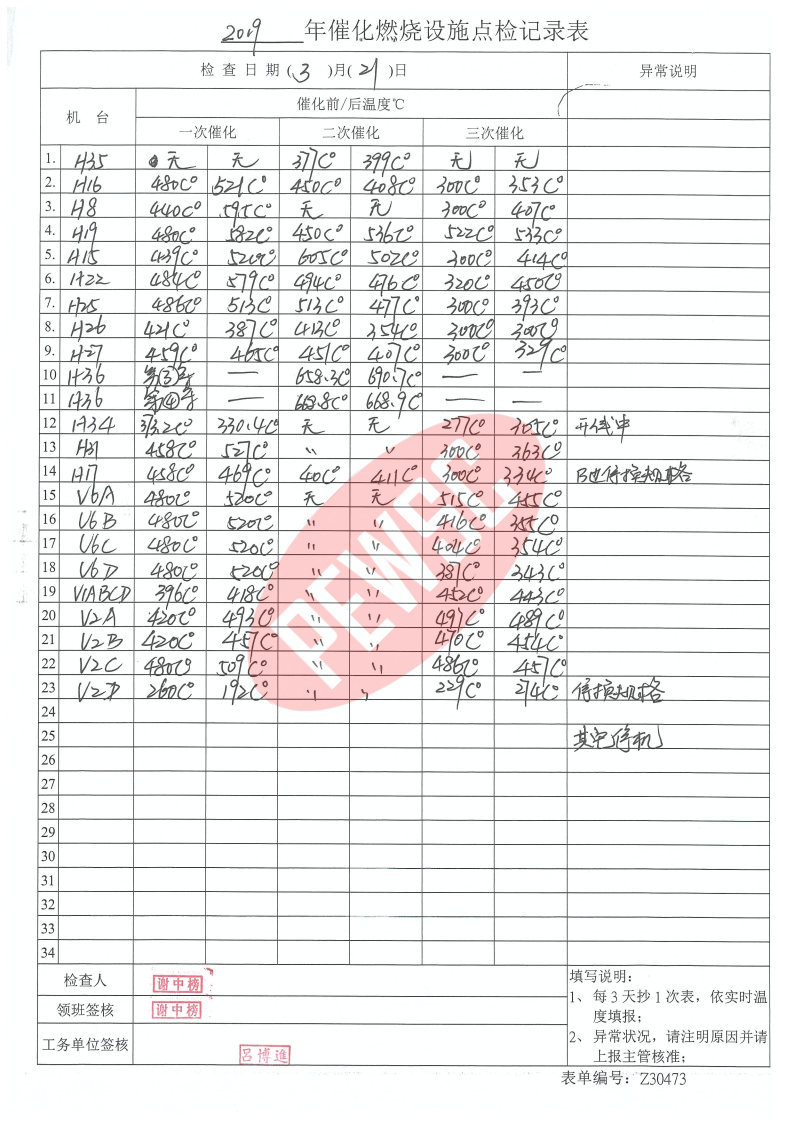 2019 年催化燃烧设施点检记录表
检查日期(3)月(21)日 异常说明
机 台 催化前/后温度℃
一次催化 二次催化 三次催化
1. H35 无 无 377C° 399C° 无 无
2. H16 480C° 521C° 450C° 408C° 300C° 353C°
3. H8 440C° 595C° 无 无 300C° 407C°
4. H19 480C° 582C° 450C° 536C° 522C° 533C°
5. H15 439C° 520C° 605C° 502C° 300C° 414C°
6. H22 484C° 579C° 494C° 476C° 320C° 450C°
7. H25 486C° 513C° 513C° 477C° 300C° 393C°
8. H26 421C° 387C° 413C° 354C° 300C° 300C°
9. H27 459C° 465C° 451C° 407C° 300C° 329C°
10 H36 第③号 — 658.3C° 690.7C° — —
11 H36 第④号 — 668.8C° 668.9C° — —
12 H34 373.2C° 330.4C° 无 无 277C° 305C° 开线中
13 H31 458C° 527C° 〃 〃 300C° 363C°
14 H17 458C° 469C° 40C° 411C° 300C° 334C° B也停换规格
15 V6A 480C° 520C° 无 无 515C° 455C°
16 V6B 480C° 520C° 〃 〃 416C° 355C°
17 V6C 480C° 520C° 〃 〃 404C° 354C°
18 V6D 480C° 520C° 〃 〃 387C° 343C°
19 V1ABCD 396C° 418C° 〃 〃 452C° 443C°
20 V2A 420C° 493C° 〃 〃 497C° 489C°
21 V2B 420C° 457C° 〃 〃 470C° 454C°
22 V2C 480C° 509C° 〃 〃 486C° 457C°
23 V2D 260C° 192C° 〃 〃 229C° 274C° 停换规格
24
25 其它停机
26
27
28
29
30
31
32
33
34
PEWSC
检查人 谢中榜
领班签核 谢中榜
工务单位签核 吕博進
填写说明：
1、每3天抄1次表，依实时温
度填报；
2、异常状况，请注明原因并请
上报主管核准；
表单编号：Z30473